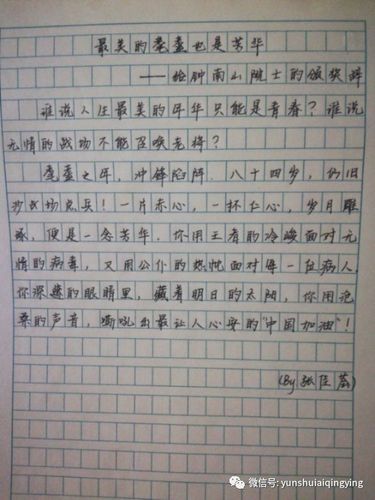 最美的耄耋也是芳华
——给钟南山院士的颁奖辞
谁说人生最美的年华只能是青春？谁说
无情的战场不能召唤老将？
耄耋之年，冲锋陷阵。八十四岁，仍旧
沙战场点兵！一片赤心，一怀仁心，岁月雕
琢，便是一念芳华。你用王者的冷峻面对无
情的病毒，又用公仆的热忱面对每一位病人。
你深邃的眼睛里，藏着明日的太阳，你用沧
桑的声音，嘶吼出最让人心安的“中国加油”！
(By 张佳
微信号: yunshuaiqingying